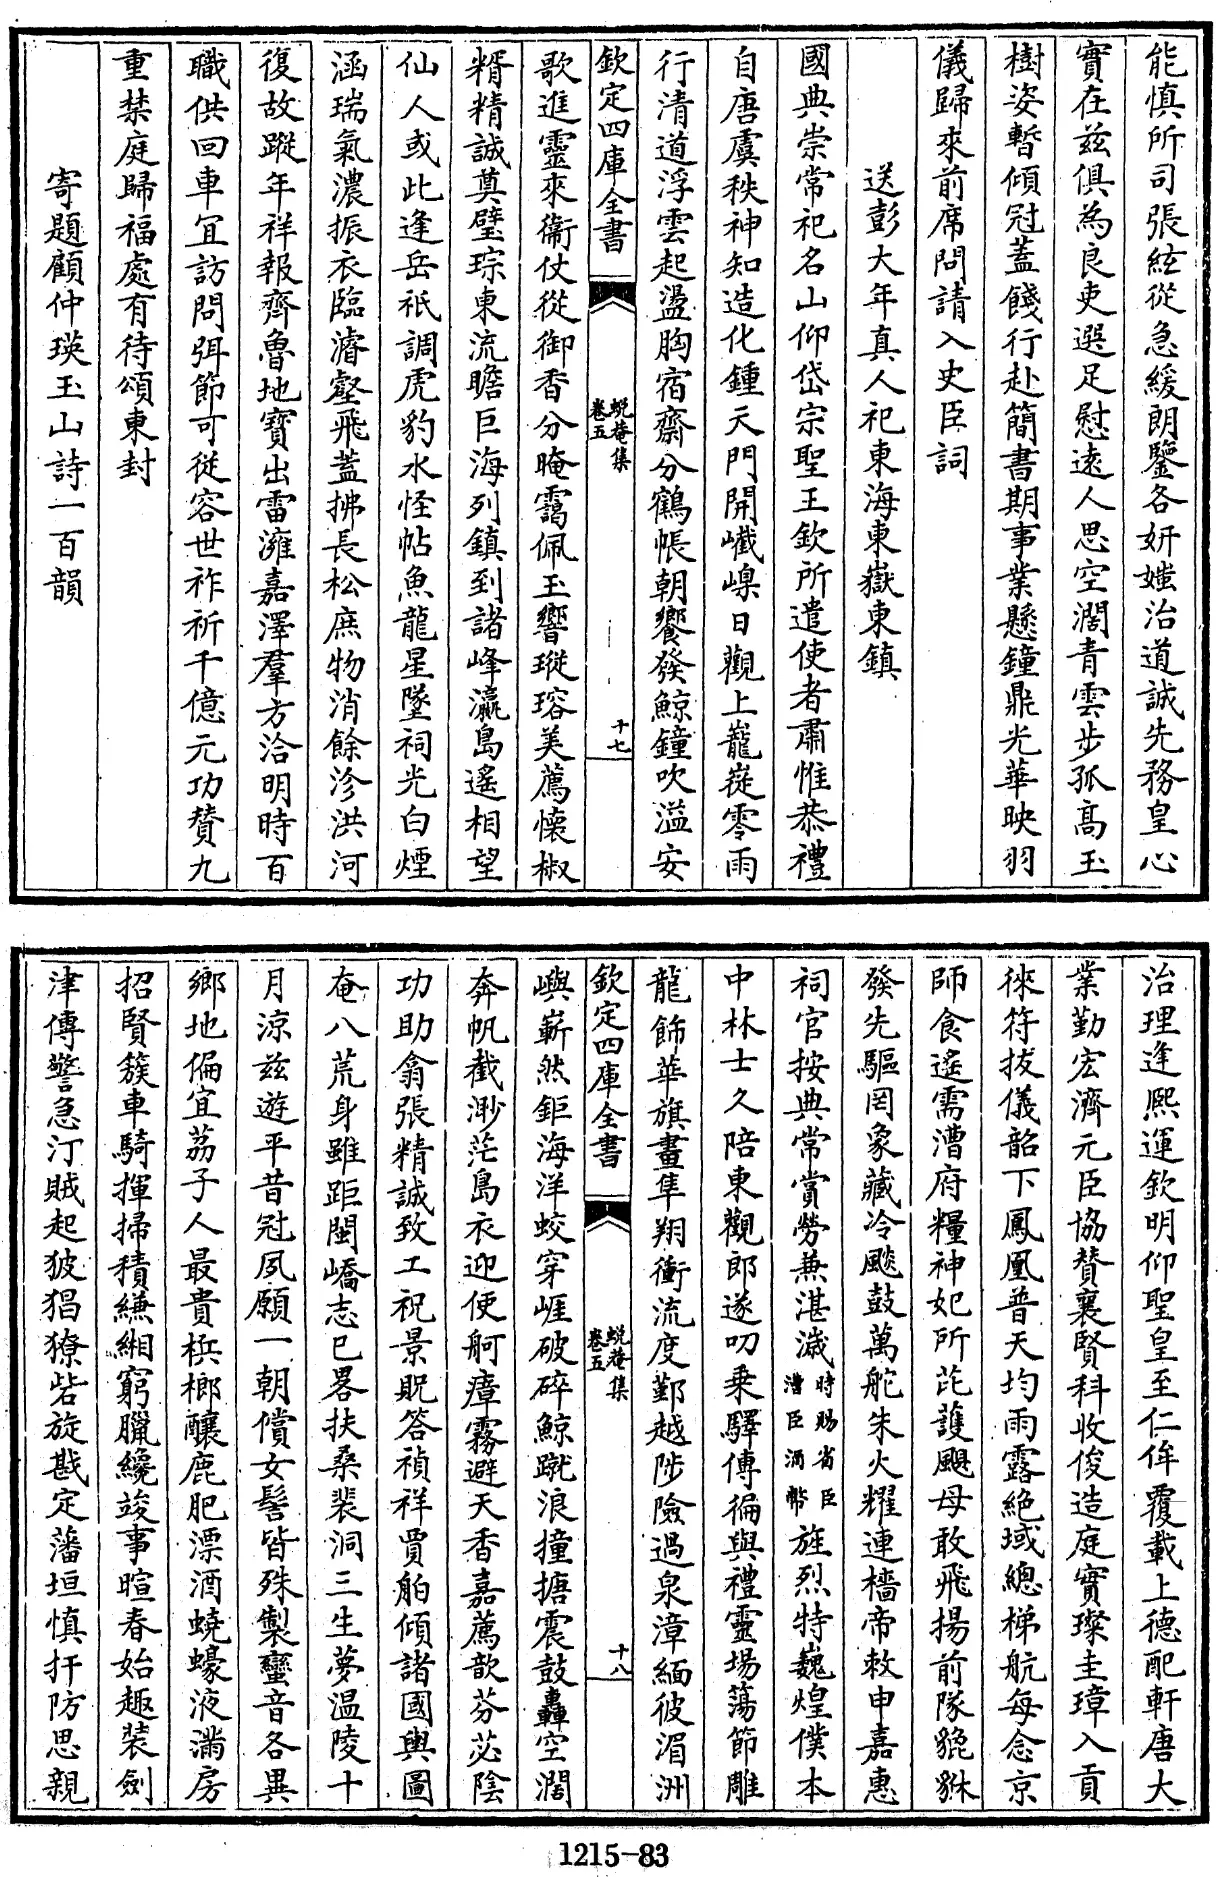 能慎所司張絃從急緩朗鑒各妍媸治道誠先務皇心
實在兹俱為良吏選足慰逺人思空濶青雲步孤高玉
樹姿暫傾冠蓋餞行赴簡書期事業懸鐘鼎光華映羽
儀歸來前席問請入史臣詞
送彭大年真人祀東海東嶽東鎮
國典崇常祀名山仰岱宗聖王欽所遣使者肅惟恭禮
自唐虞秩神知造化鍾天門開巀嵲日觀上巃嵸零雨
行清道浮雲起盪胸宿齋分鶴帳朝饗發鯨鐘吹溢安
欽定四庫全書
蛻菴集
卷五
十七
歌進靈來衞仗從御香分晻靄佩玉響瑽瑢美薦懐椒
糈精誠奠璧琮東流瞻巨海列鎮到諸峰瀛島遙相望
仙人或此逢岳祇調虎豹水怪帖魚龍星墜祠光白煙
涵瑞氣濃振衣臨濬壑飛蓋拂長松庶物消餘沴洪河
復故蹤年祥報齊魯地寳出雷澭嘉澤羣方洽明時百
職供回車宜訪問弭節可從容世祚祈千億元功賛九
重禁庭歸福處有待頌東封
寄題顧仲瑛玉山詩一百韻
治理逢熙運欽明仰聖皇至仁侔覆載上德配軒唐大
業勤宏濟元臣協賛襄賢科收俊造庭實璨圭璋入貢
徠符拔儀韶下鳳凰普天均雨露絶域總梯航每念京
師食遙需漕府糧神妃所芘䕶颶母敢飛揚前隊貔貅
發先驅罔象藏冷飈鼓萬舵朱火耀連檣帝敕申嘉惠
祠官按典常賞勞兼湛濊時賜省臣漕臣酒幣旌烈特巍煌僕本
中林士久陪東觀郎遂叨乗驛傳徧與禮靈場蕩節雕
龍飾華旗畫隼翔衝流度鄞越陟險過泉漳緬彼湄洲
欽定四庫全書
蛻菴集
卷五
十八
嶼嶄然鉅海洋蛟穿崕破碎鯨蹴浪撞搪震鼓轟空濶
奔帆截渺茫島衣迎使舸瘴霧避天香嘉薦歆芬苾陰
功助翕張精誠致工祝景貺答禎祥賈舶傾諸國輿圖
奄八荒身雖距閩嶠志已畧扶桑裴洞三生夢温陵十
月涼兹遊平昔冠夙願一朝償女髻皆殊製蠻音各異
鄉地偏宜荔子人最貴檳榔釀鹿肥漂酒蟯蠔液滿房
招賢簇車騎揮掃積縑緗窮臘纔竣事暄春始趣装劍
津傳警急汀賊起披猖獠砦旋戡定藩垣慎扞防思親
1215-83